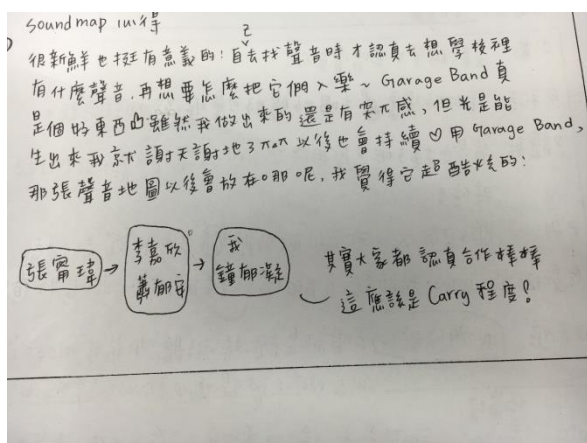 soundmap 心得
很新鮮也挺有意義的!自己去找聲音時才認真去想學校裡
有什麼聲音,再想要怎麼把它們入樂~Garage Band真
是個好東西凸雖然我做出來的還是有突兀感,但光是能
生出來我就謝天謝地了π.π 以後也會持續♡用Garage Band,
那張聲音地圖以後會放在哪呢,我覺得它超酷炫的!
張甯瑋→李嘉欣 蕭郁安→我 鐘郁凝
其實大家都認真合作棒棒
這應該是Carry程度!